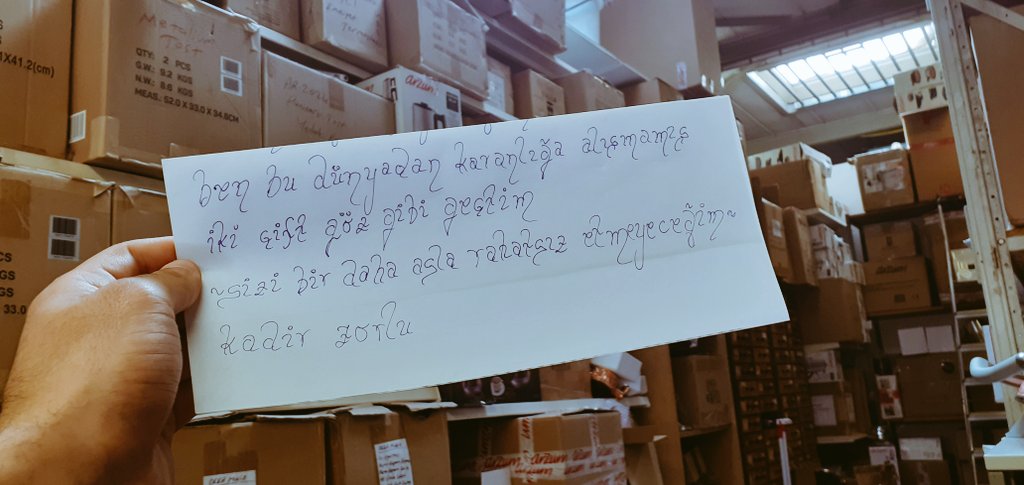 X41.2(cm)
QTY: 2 PCS
G.W: 9.2 KGS
N.W: 8.0 KGS
MEAS: 52.0 X 33.0 X 34.5CM
arzum
ben bu dünyadan karanlığa alışmamış
iki çift göz gibi geçtim
~sizi bir daha asla rahatsız etmeyeceğim~
kadir zorlu
GS
KGS
33.0
arzum